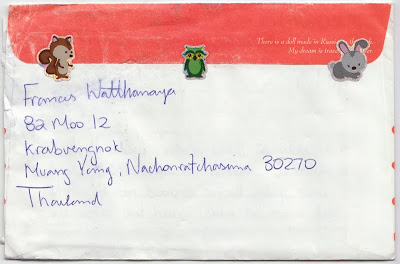 There is a doll made in Russ
My dream is trave
Frances Watthanaya
82 Moo 12
Krabuengnok
Muang Yang, Nachonratchasima 30270
Thailand